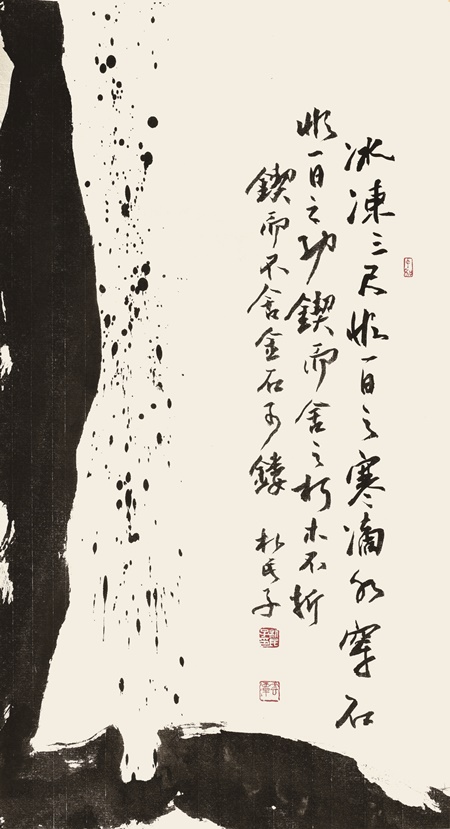 冰凍三尺非一日之寒滴水穿石
非一日之功鍥而舍之朽木不折
鍥而不舍金石可鏤